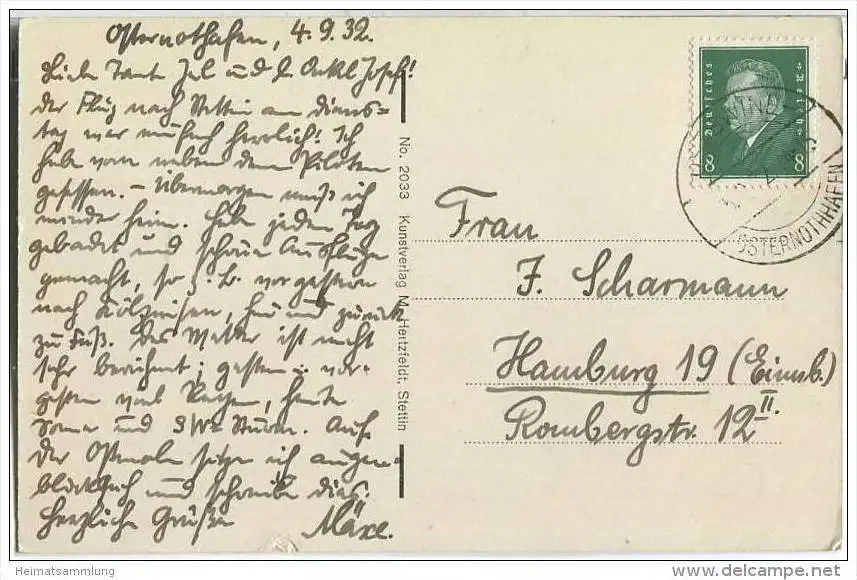 Osternothafen, 4.9.32.
Liebe Tante Jel und l. Onkel Josef!
Der Flug nach Stettin am Diens=
tag war einfach herrlich! Ich
habe vorn neben dem Piloten
gesessen. – Übermorgen muß ich
wieder heim. Habe jeden Tag
gebadet und schöne Ausflüge
gemacht, so z. B. vorgestern
nach, hin und zurück
zu Fuß. Das Wetter ist nicht
sehr berühmt; gestern u. vor=
gestern viel Regen, heute
Sonne und Sturm. Auf
der Ostmole sitze ich augen=
blicklich und schreibe dies.
Herzliche Grüße Maxe.
No. 2033 Kunstverlag M. Hertzfeldt, Stettin
Deutsches Reich
8 8
OSTERNOTHHAFEN
Frau
J. Scharmann
Hamburg 19 (Eimsb.)
Rombergstr. 12 II.
Heimatsammlung
delcampe.net